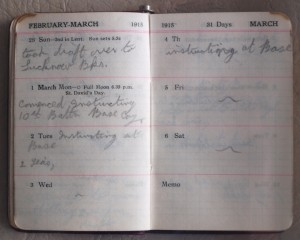 FEBRUARY-MARCH 1915
28 Sun—2nd in Lent. Sun sets 5.38
took draft over to
Lucknow Bks.
1 March Mon—○ Full Moon 6.33 p.m.
St. David's Day.
Commenced Instructing
10th Battn Base Coy
2 Tues Instructing at
Base
3 Wed
1915 31 Days MARCH
4 Th
instructing at Base
5 Fri
6 Sat
Memo